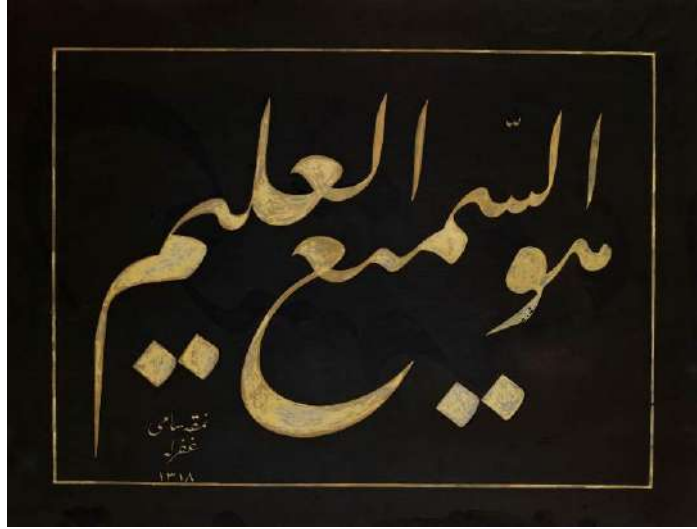 هو السّميع العليم
نمقه سامی
غفر له
١٣١٨